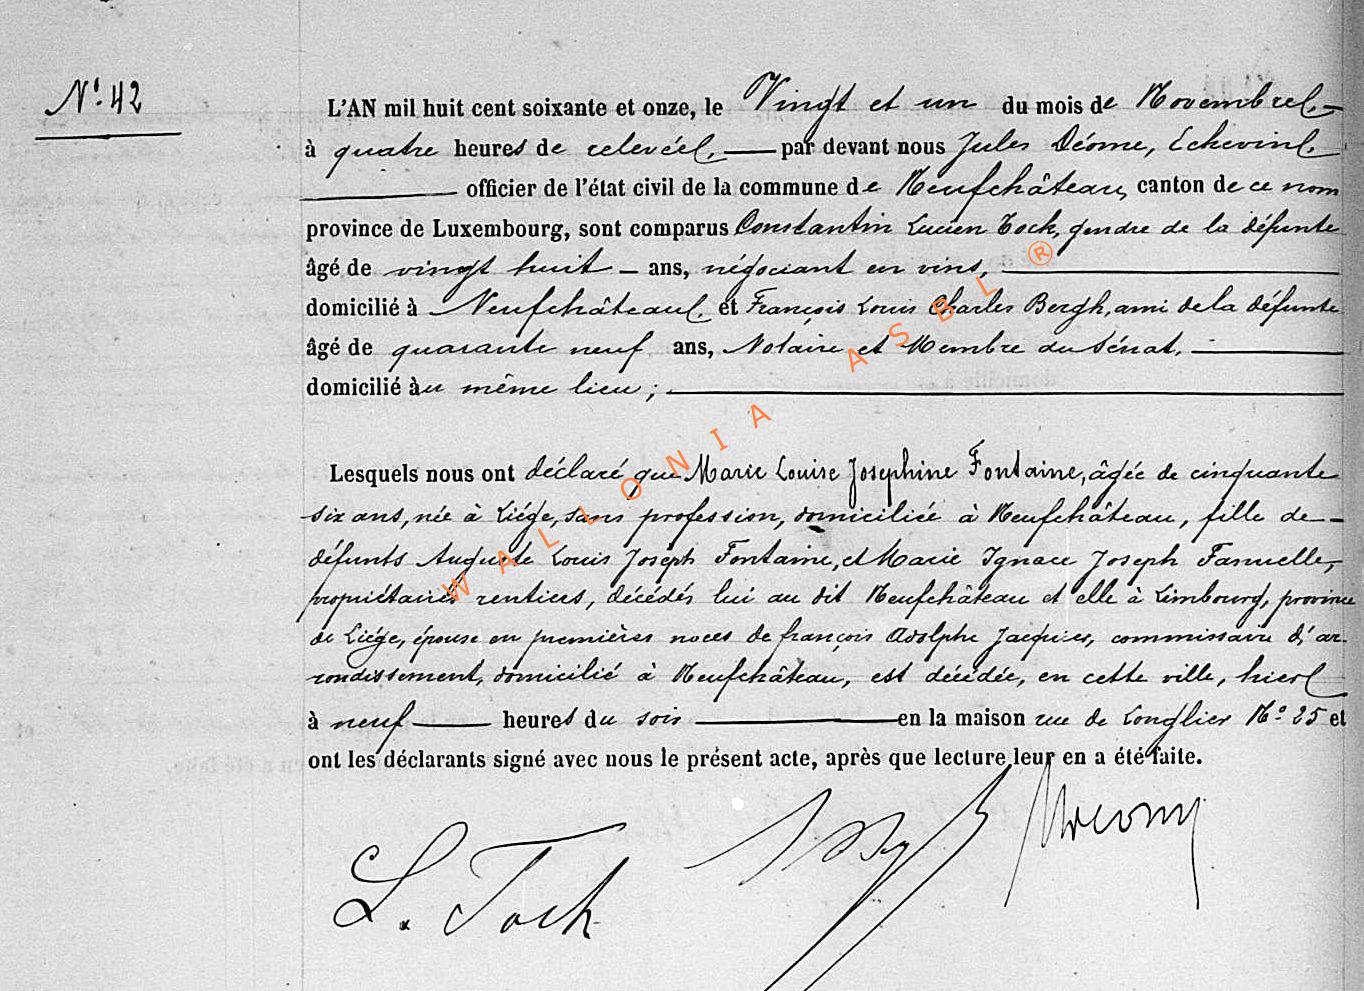 Nº 42
L'AN mil huit cent soixante et onze, le Vingt et un du mois de Novembre
à quatre heures de relevée, par devant nous Jules Déome, Echevin
officier de l'état civil de la commune de Neufchâteau, canton de ce nom
province de Luxembourg, sont comparus Constantin Lucien Tock, gendre de la défunte
âgé de vingt huit ans, négociant en vins,
domicilié à Neufchâteau, et François Louis Charles Bergh, ami de la défunte
âgé de quarante neuf ans, Notaire et Membre du Sénat,
domicilié au même lieu ;
Lesquels nous ont déclaré que Marie Louise Josephine Fontaine, âgée de cinquante
six ans, née à Liége, sans profession, domiciliée à Neufchâteau, fille de
défunts Auguste Louis Joseph Fontaine, et Marie Ignace Joseph Fanuelle,
propriétaires rentiers, décédés lui au dit Neufchâteau et elle à Limbourg, province
de Liége, épouse en premières noces de françois Adolphe Jacquier, commissaire d'ar-
rondissement, domicilié à Neufchâteau, est décédée, en cette ville, hier
à neuf heures du soir en la maison rue de Longlier Nº 25 et
ont les déclarants signé avec nous le présent acte, après que lecture leur en a été faite.
L. Tock
WALLONIA ASBL ®